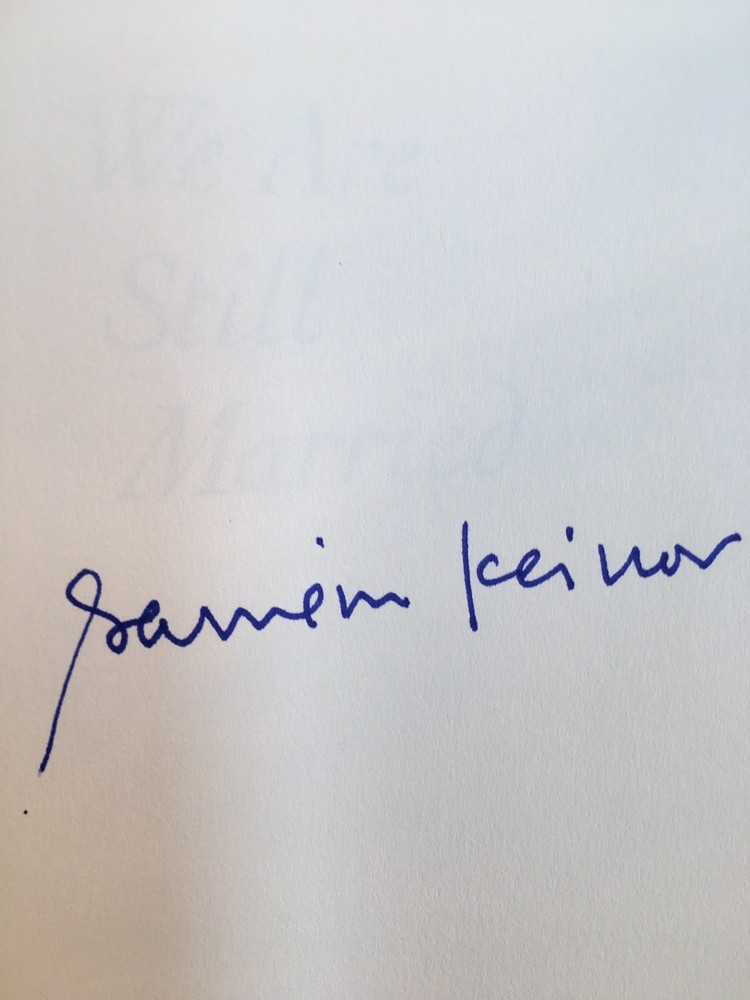 We Are
Still
Married
Garrison Keillor